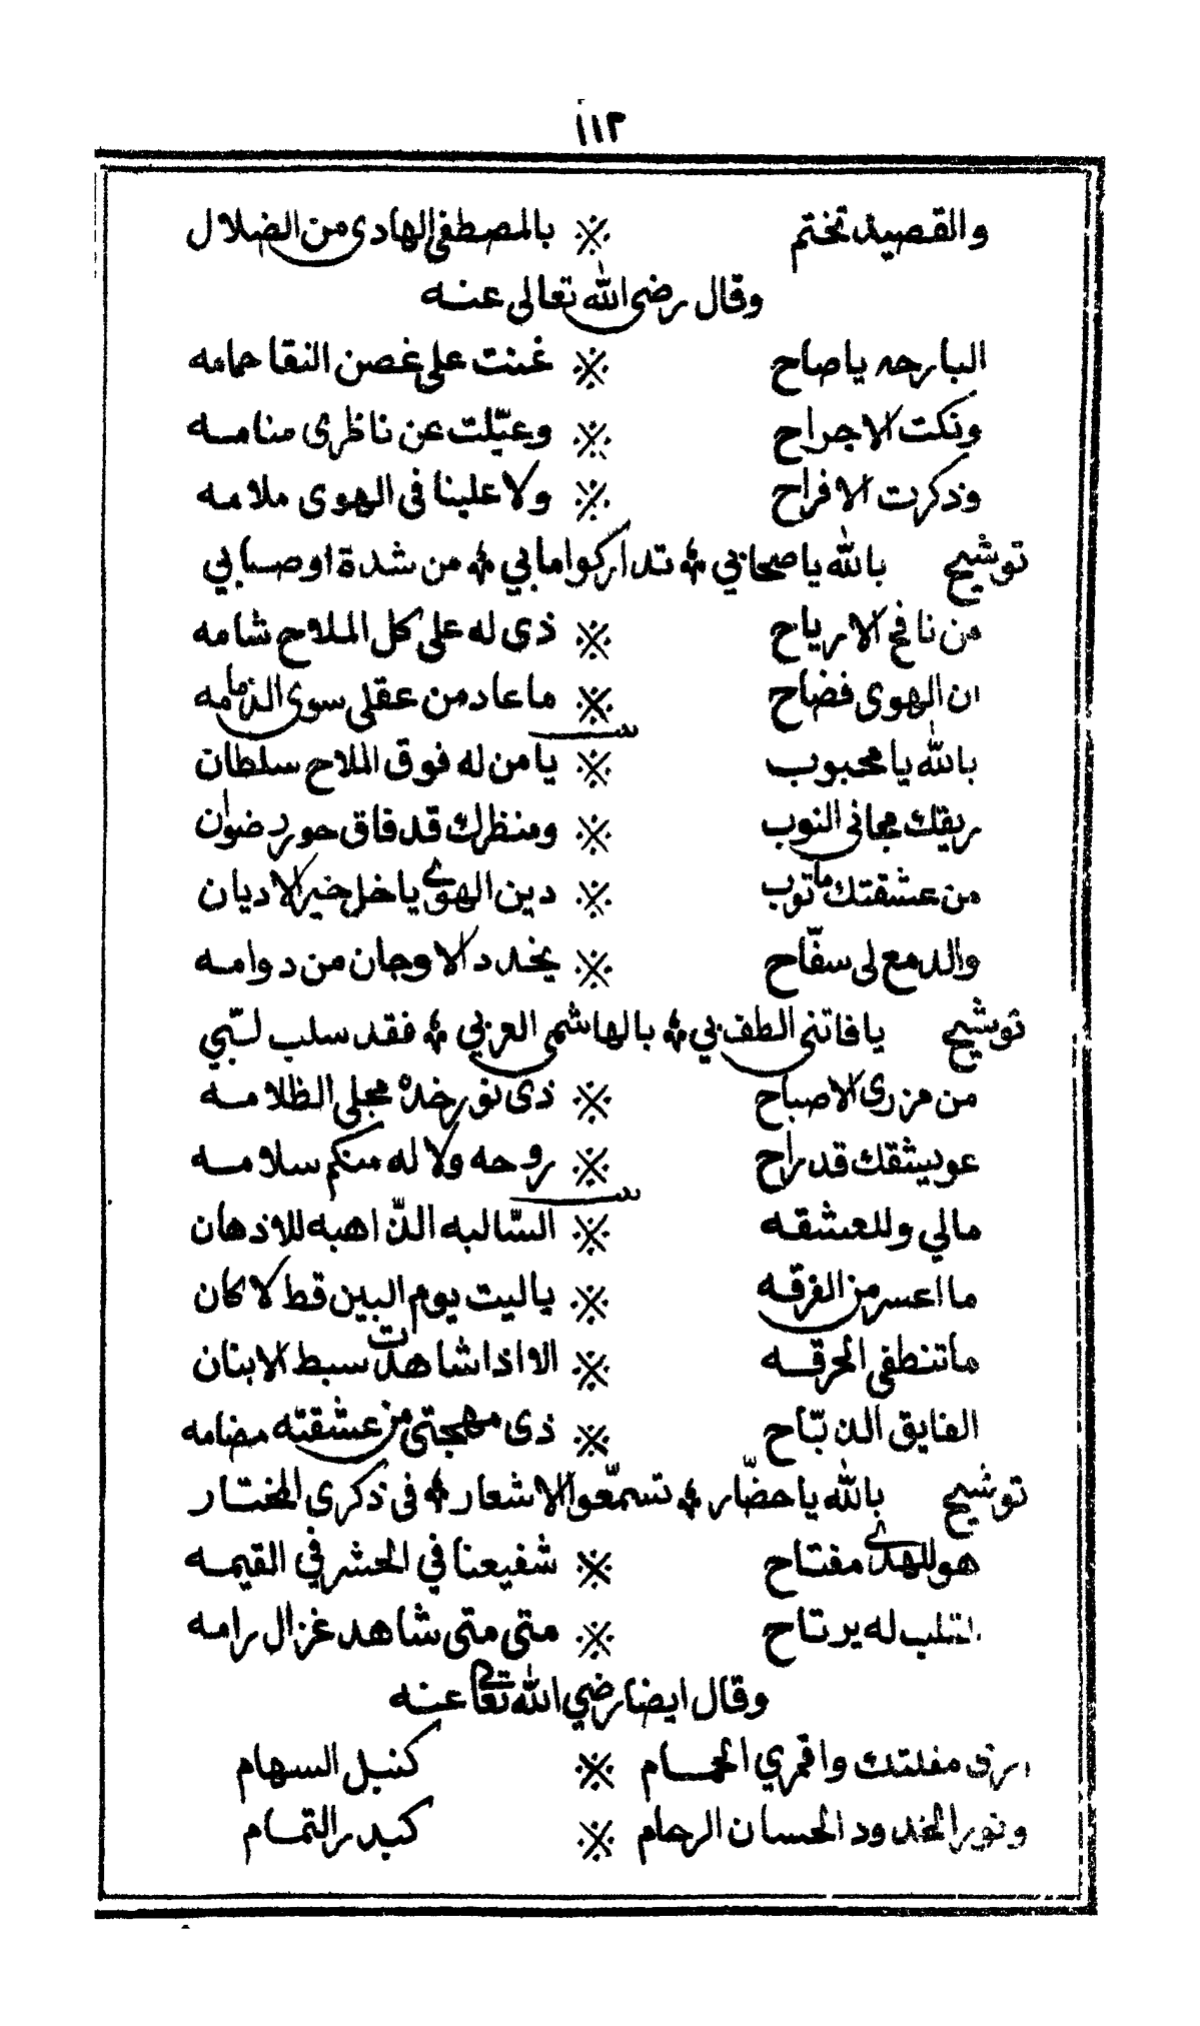 ١١٢
والقصيد تختم ※ بالمصطفى الهادي من الضلال
وقال رضى الله تعالى عنه
البارحه ياصاح ※ غنت على غصن النقا حمامه
ونكت الاجراح ※ وعيّلت عن ناظرى منامه
وذكرت الافراح ※ ولا علينا فى الهوى ملامه
توشيح بالله ياصحابي ※ تداركوا مابي ※ من شدة اوصابي
من نافح الارياح ※ ذى له على كل الملاح شامه
ان الهوى فضاح ※ ما عاد من عقلى سوى الذمامه
بالله يا محبوب ※ يا من له فوق الملاح سلطان
ريقك مجانى النوب ※ ومنظرك قد فاق حور رضوان
من عشقتك ما توب ※ دين الهوى ياخل خير الاديان
والدمع لى سفّاح ※ يخدد الاوجان من دوامه
توشيح يا فاتنى الطف بي ※ بالهاشمى العربي ※ فقد سلب لبّي
من مزرى الاصباح ※ ذى نور خده مجلى الظلامه
عويشقك قد راح ※ روحه ولا له منكم سلامه
مالي وللعشقه ※ السّالبه الذّاهبه للاذهان
ما اعسر من الفرقه ※ ياليت يوم البين قط لا كان
ماتنطفى الحرقه ※ الا اذا شاهدت سبط الابنان
الفايق الذبّاح ※ ذى مهجتى من عشقته مضامه
توشيح بالله يا حضّار ※ تسمّعوا الاشعار ※ فى ذكرى المختار
هو للهدى مفتاح ※ شفيعنا في الحشر في القيمه
القلب له يرتاح ※ متى متى شاهد غزال رامه
وقال ايضا رضي الله تعالى عنه
مفلتك واقمري الحمام ※ كنبل السهام
ونور الخدود الحسان الرحام ※ كبدر التمام